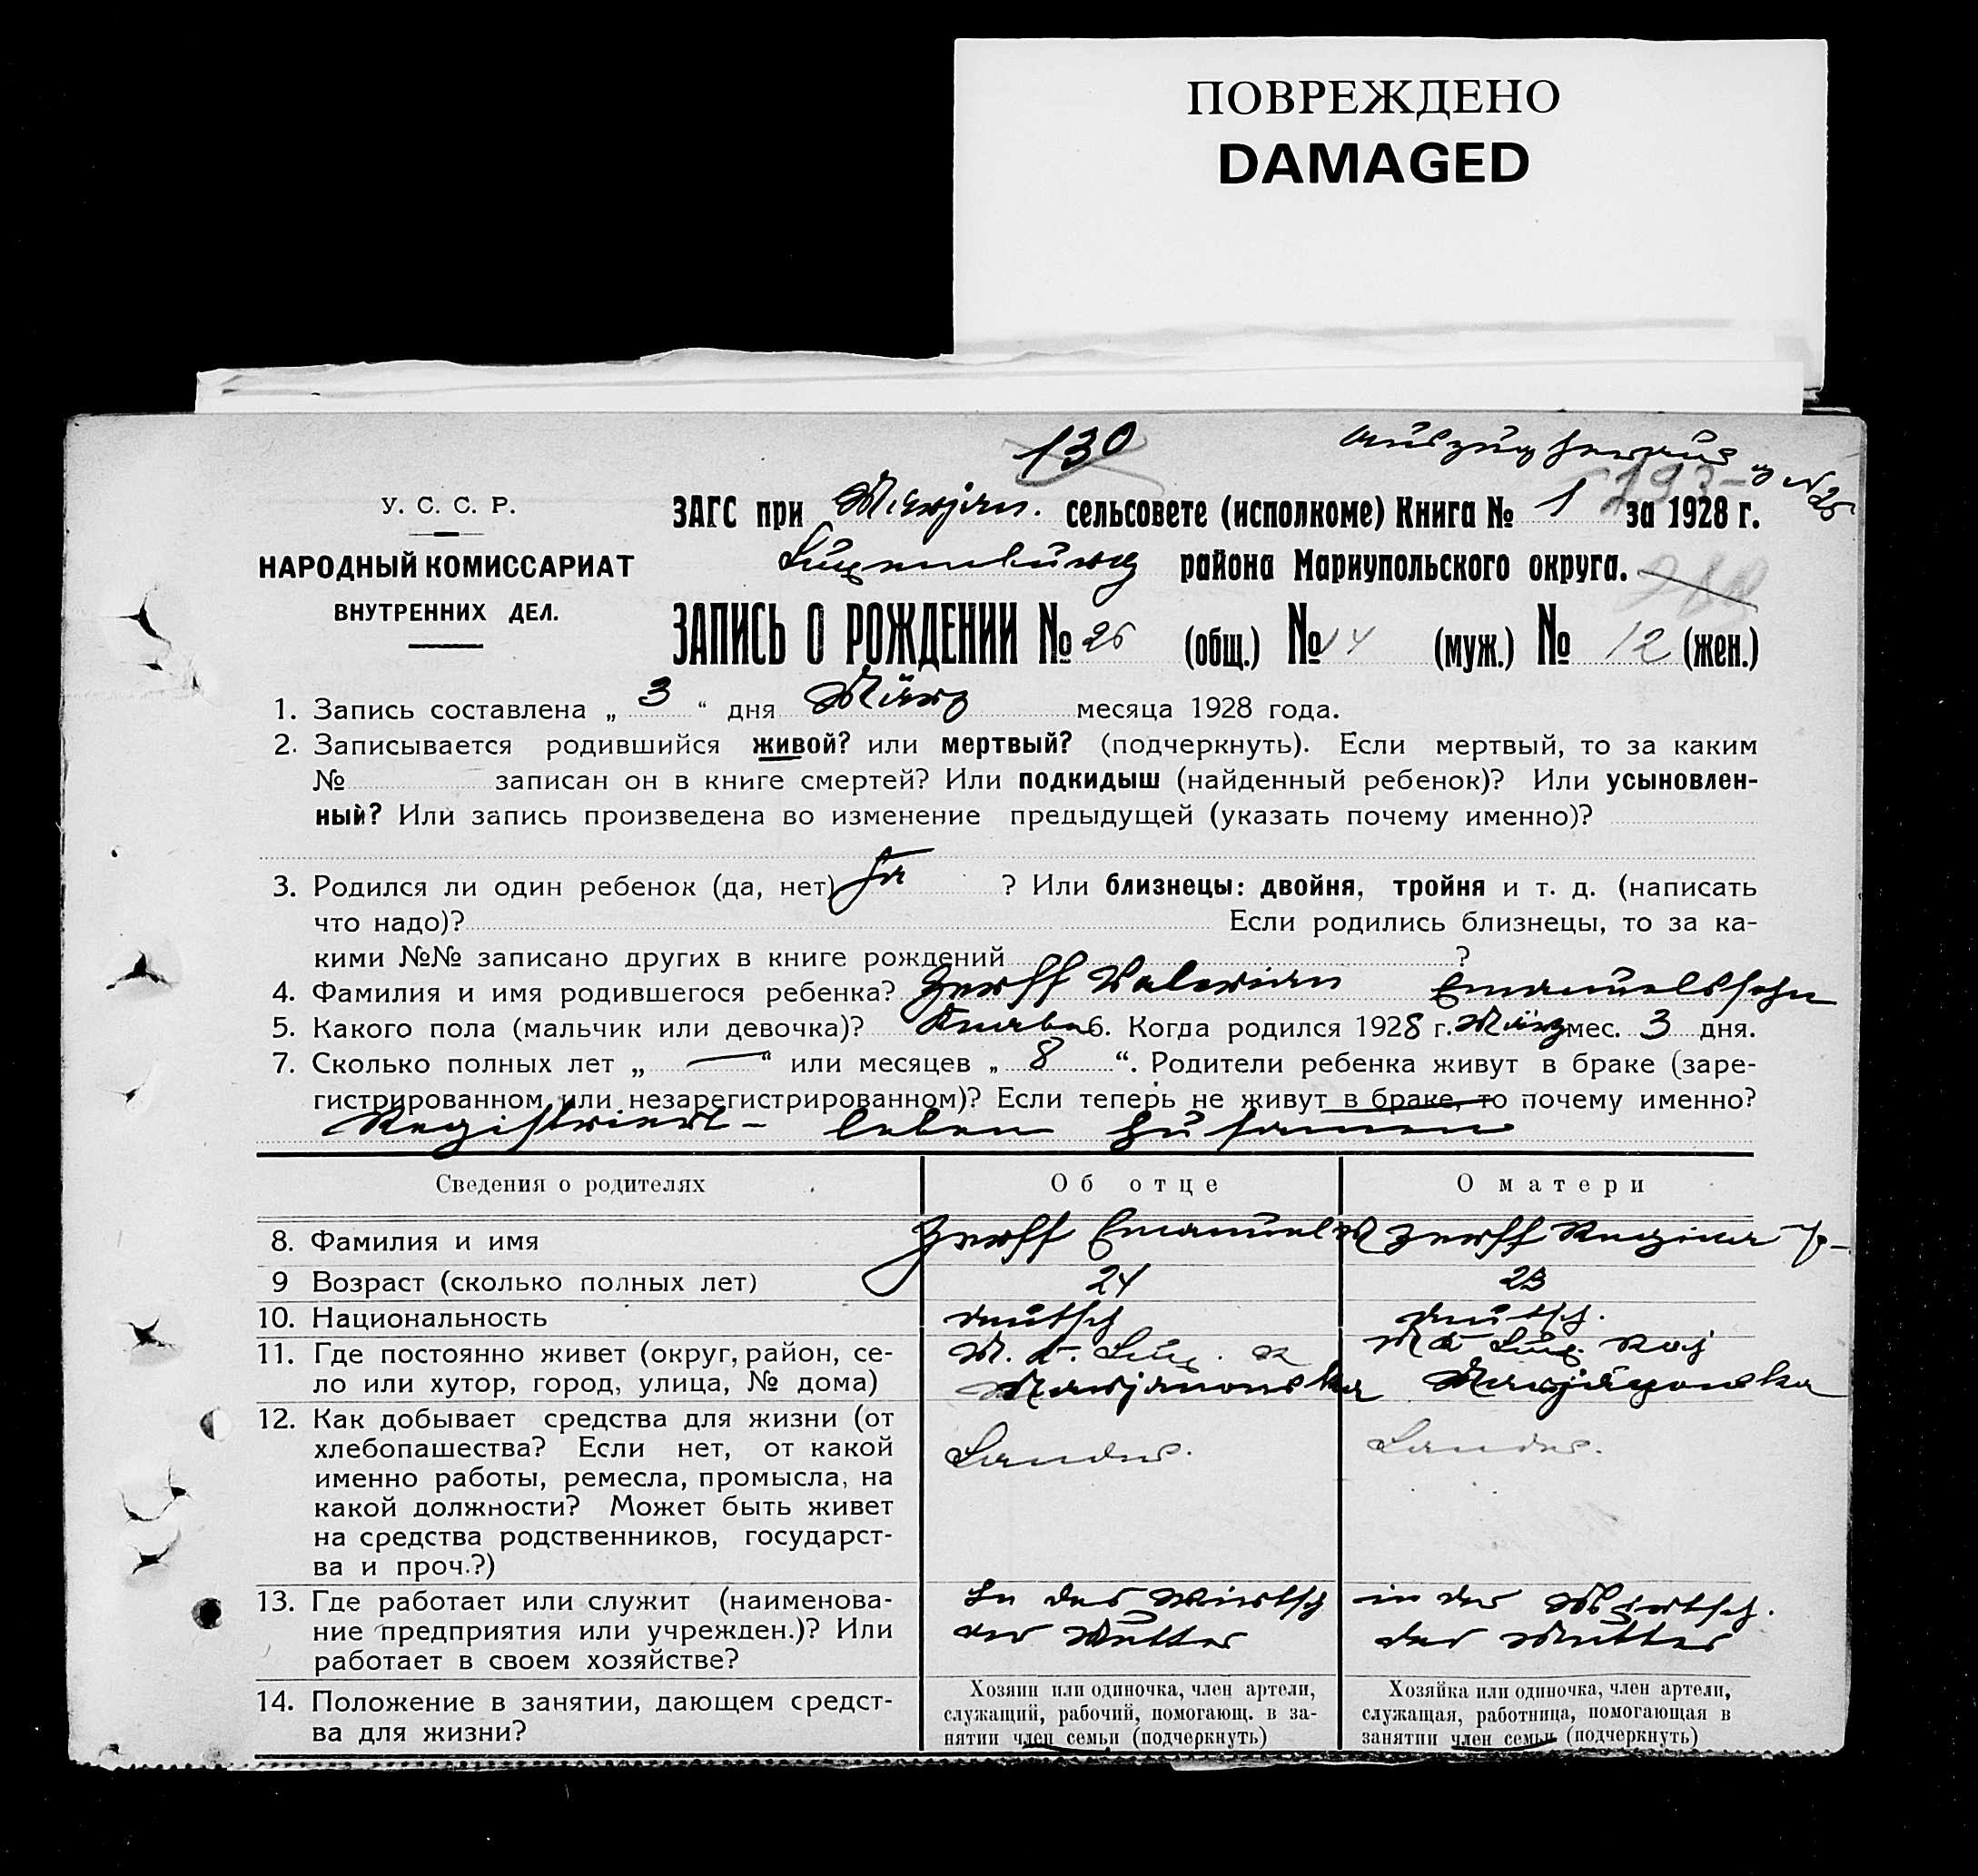 ПОВРЕЖДЕНО
DAMAGED
130
Auszug heraus
293
N 25
У. С. С. Р.
НАРОДНЫЙ КОМИССАРИАТ
ВНУТРЕННИХ ДЕЛ.
ЗАГС при Marjan. сельсовете (исполкоме) Книга № 1 за 1928 г.
Luxemburg района Мариупольского округа.
ЗАПИСЬ О РОЖДЕНИИ № 26 (общ.) № 14 (муж.) № 12 (жен.)
1. Запись составлена „ 3 “ дня März месяца 1928 года.
2. Записывается родившийся живой? или мертвый? (подчеркнуть). Если мертвый, то за каким
№ записан он в книге смертей? Или подкидыш (найденный ребенок)? Или усыновлен-
ный? Или запись произведена во изменение предыдущей (указать почему именно)?
3. Родился ли один ребенок (да, нет) Ja ? Или близнецы: двойня, тройня и т. д. (написать
что надо)? Если родились близнецы, то за ка-
кими №№ записано других в книге рождений ?
4. Фамилия и имя родившегося ребенка? Zerff Valerian Emanuelssohn
5. Какого пола (мальчик или девочка)? Knabe 6. Когда родился 1928 г. März мес. 3 дня.
7. Сколько полных лет „ — “ или месяцев „ 8 “. Родители ребенка живут в браке (заре-
гистрированном или незарегистрированном)? Если теперь не живут в браке, то почему именно?
Registriert - leben zusamen
Сведения о родителях
Об отце
О матери
8. Фамилия и имя
Zerff Emanuel
Zerff Regina
9 Возраст (сколько полных лет)
24
23
10. Национальность
deutsch
deutsch.
11. Где постоянно живет (округ, район, се-
ло или хутор, город, улица, № дома)
M. K. Lux. R
Marjanowska
M K Lux. Raj
Marjanowska
12. Как добывает средства для жизни (от
хлебопашества? Если нет, от какой
именно работы, ремесла, промысла, на
какой должности? Может быть живет
на средства родственников, государст-
ва и проч.?)
Landw.
Landw.
13. Где работает или служит (наименова-
ние предприятия или учрежден.)? Или
работает в своем хозяйстве?
In der Wirtsch
der Mutter
in der Wirtsch.
der Mutter
14. Положение в занятии, дающем средст-
ва для жизни?
Хозяин или одиночка, член артели,
служащий, рабочий, помогающ. в за-
нятии член семьи (подчеркнуть)
Хозяйка или одиночка, член артели,
служащая, работница, помогающая в
занятии член семьи (подчеркнуть)